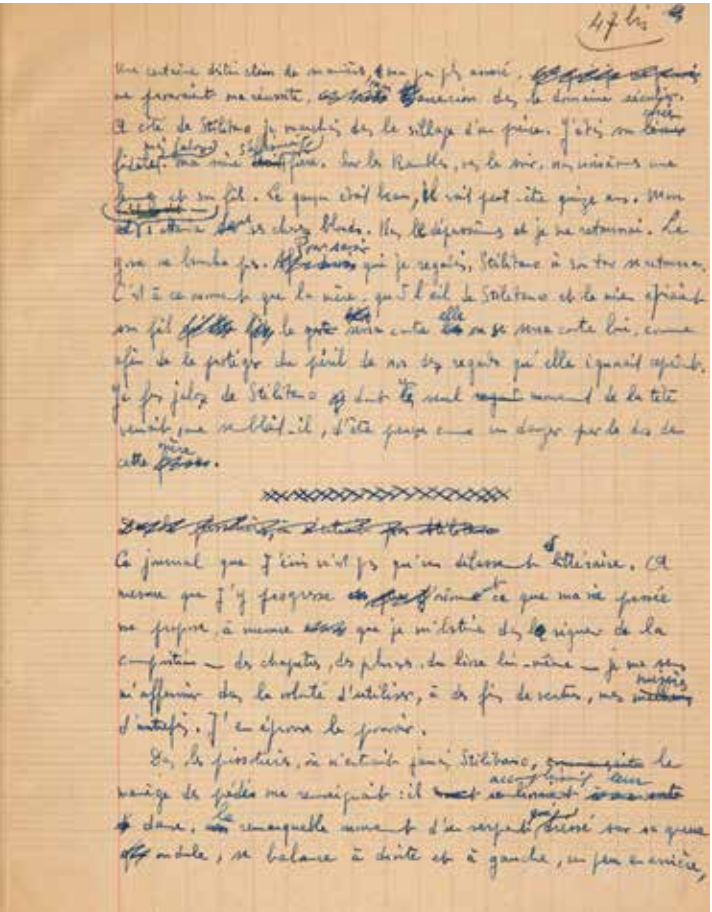 47 bis
Une certaine distinction de manières, un pas plus assuré,
me prouvaient ma réussite, ascension dans le domaine séculier.
A côté de Stilitano je marchais dans le sillage d'un prince. J'étais son
fidèle mais jaloux. Ma mine fière. Sur les Ramblas, vers le soir, nous croisâmes une
femme et son fils. Le garçon était beau, il avait peut-être quinze ans. Mon
œil s'attarda sur ses cheveux blonds. Nous le dépassâmes et je me retournai. Le
gosse ne broncha pas. Pour savoir qui je regardais, Stilitano à son tour se retourna.
C'est à ce moment que la mère, quand l'œil de Stilitano et le mien épiaient
son fils le serra contre elle ou se serra contre lui, comme
afin de le protéger du péril de nos deux regards qu'elle ignorait cependant.
Je fus jaloux de Stilitano dont le seul mouvement de la tête
venait, me semblait-il, d'être perçu comme un danger par le dos de
cette mère.
Ce journal que j'écris n'est pas qu'un délassement littéraire. A
mesure que j'y progresse ce que ma vie passée
me propose, à mesure que je m'obstine dans la rigueur de la
composition — des chapitres, des phrases, du livre lui-même — je me sens
m'affermir dans la volonté d'utiliser, à des fins de vertus, mes misères
d'autrefois. J'en éprouve le pouvoir.
Dans les pissotières, où n'entrait jamais Stilitano, le
manège des pédés me renseignait : il accomplissaient leur
danse, le remarquable mouvement d'un serpent qui, dressé sur sa queue
ondule, se balance à droite et à gauche, un peu en arrière,